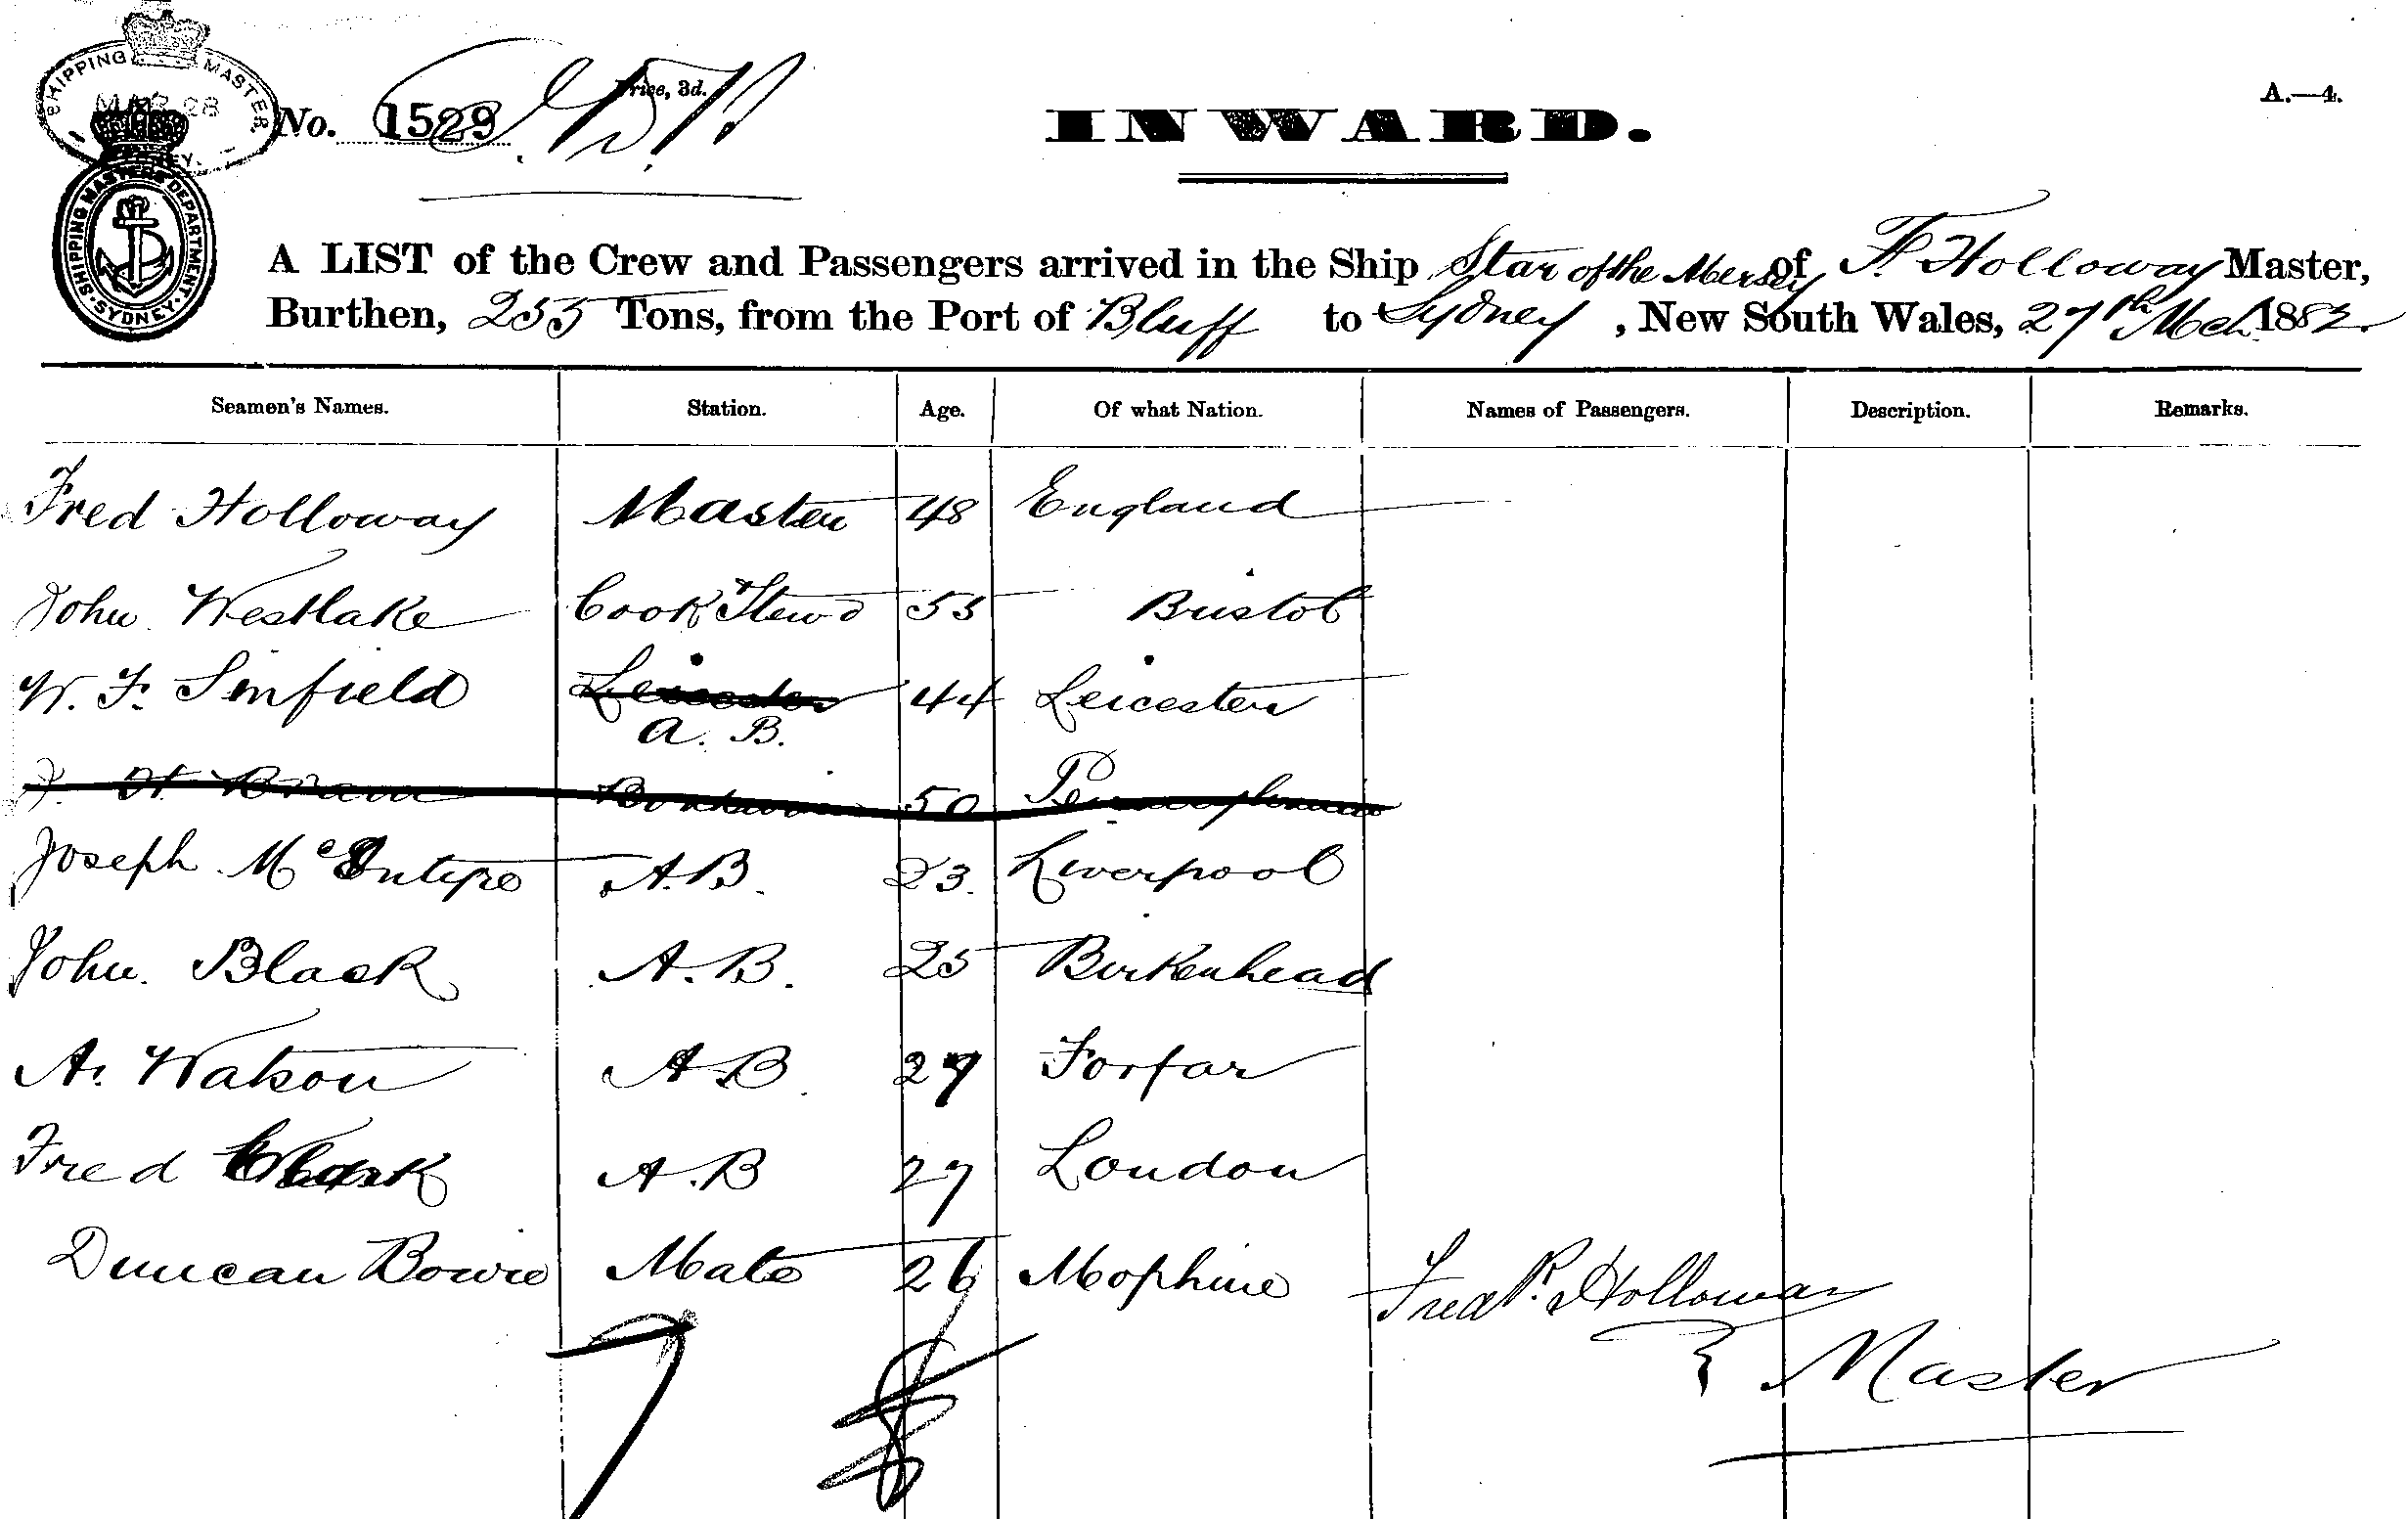 SHIPPING MASTER
MAR 28
No. 1529
Price, 3d.
INWARD.
A.—4.
SHIPPING MASTERS DEPARTMENT. SYDNEY.
A LIST of the Crew and Passengers arrived in the Ship Star of the Mersey of F. Holloway Master,
Burthen, 255 Tons, from the Port of Bluff to Sydney, New South Wales, 27th Mch 1882.
Seamen's Names. Station. Age. Of what Nation. Names of Passengers. Description. Remarks.
Fred Holloway Master 48 England
John Westlake Cook Stewd 55 Bristol
W. F. Sinfield Leicester 44 Leicester
A. B.
50
Joseph McEntyre A.B. 23. Liverpool
John Black A.B. 25 Birkenhead
A. Watson A.B 27 Forfar
Fred Clark A.B 27 London
Duncan Bowie Mate 26 Mophine
Fredk. Holloway
Master
7 8